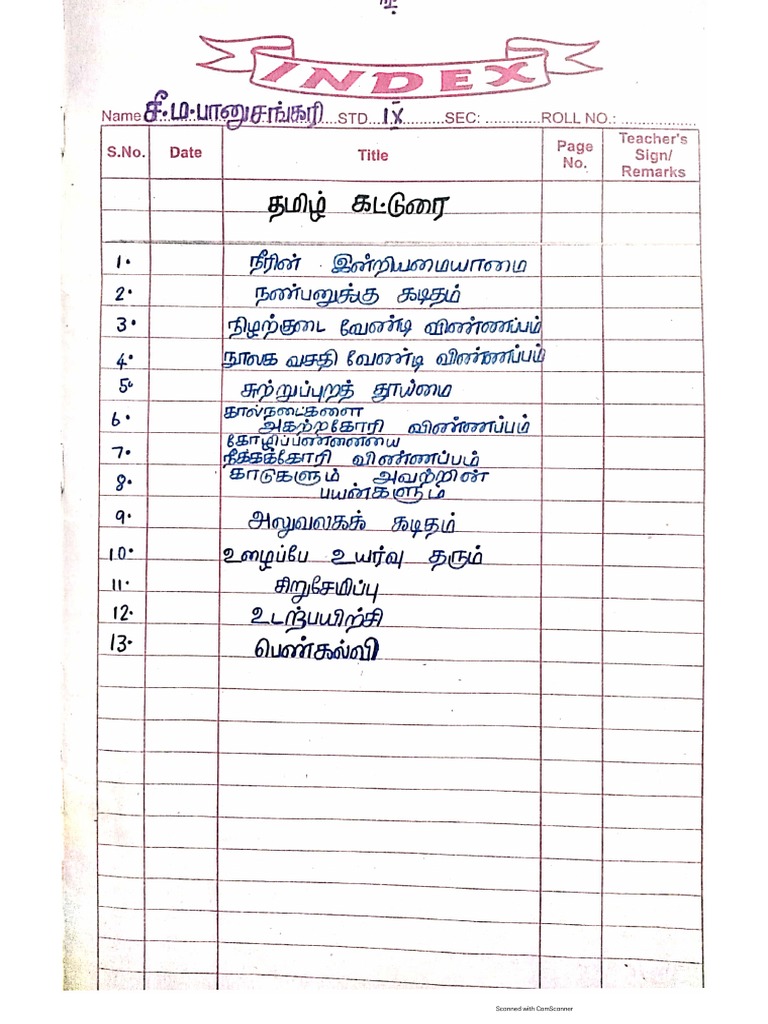 INDEX
Name சீ.ம.பானுசங்கரி STD IX SEC: ROLL NO.:
S.No. Date Title Page No. Teacher's Sign/ Remarks
தமிழ் கட்டுரை
1. நீரின் இன்றியமையாமை
2. நண்பனுக்கு கடிதம்
3. நிழற்குடை வேண்டி விண்ணப்பம்
4. நூலக வசதி வேண்டி விண்ணப்பம்
5. சுற்றுப்புறத் தூய்மை
6. கால்நடைகளை
அகற்றகோரி விண்ணப்பம்
7. கோழிப்பண்ணையை
நீக்கக்கோரி விண்ணப்பம்
8. காடுகளும் அவற்றின்
பயன்களும்
9. அலுவலகக் கடிதம்
10. உழைப்பே உயர்வு தரும்
11. சிறுசேமிப்பு
12. உடற்பயிற்சி
13. பெண்கல்வி
Scanned with CamScanner